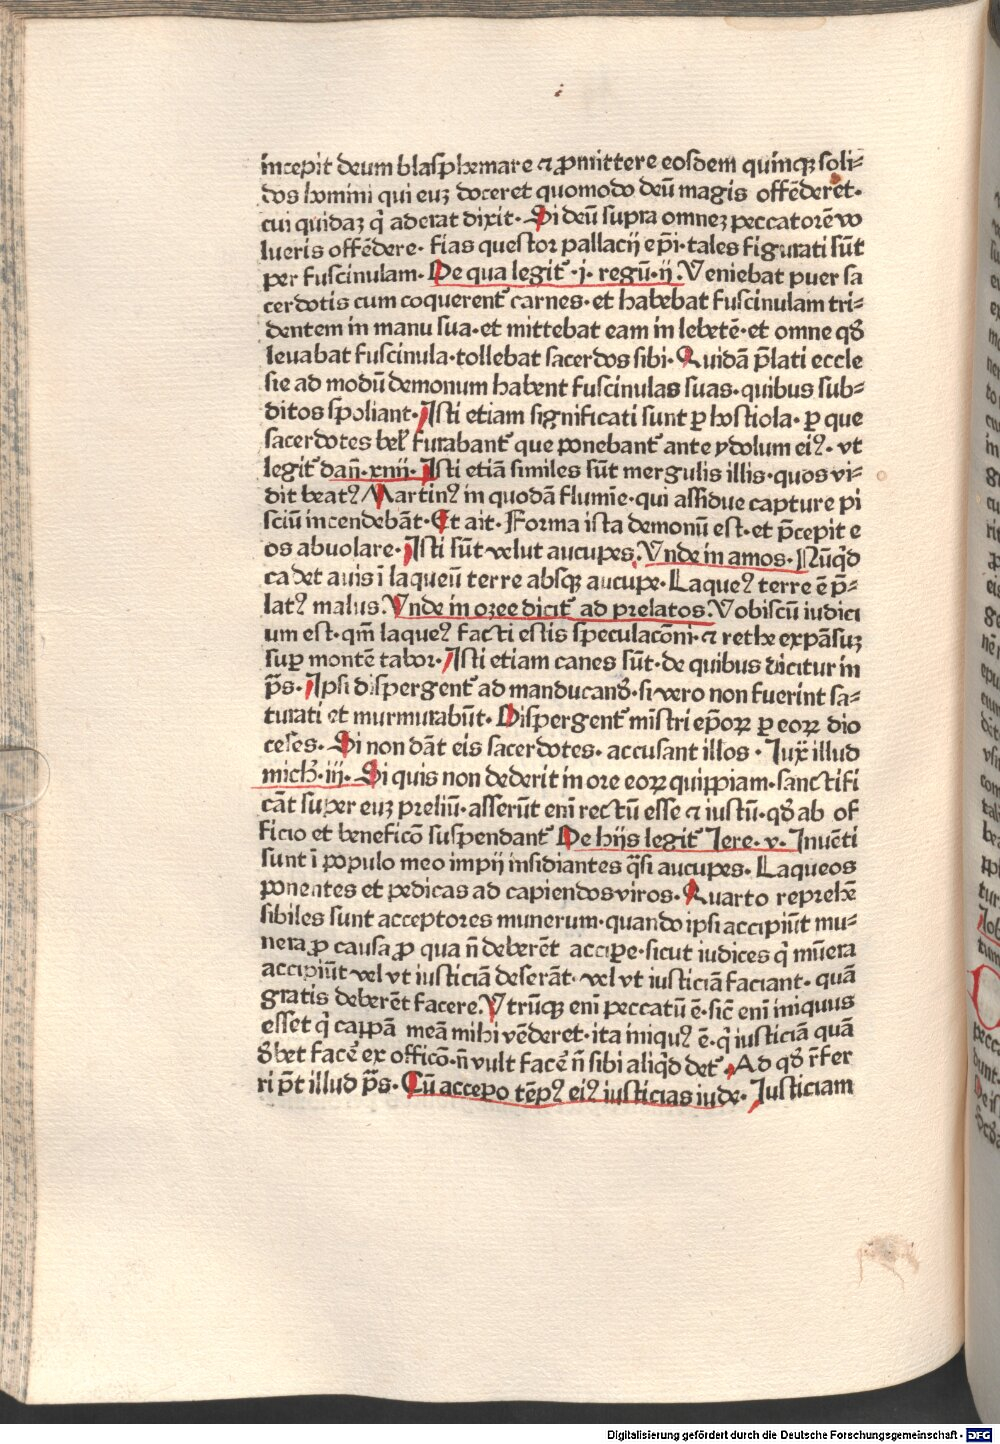 incepit deum blasphemare ⁊ ꝓmittere eosdem quinqꝫ soli⸗
dos homini qui euꝫ doceret quomodo deū magis offēderet·
cui quidaꝫ q̄ aderat dixit· Si deū supra omneꝫ peccatorē vo
lueris offēdere· fias questor pallacij ep̄i· tales figurati sūt
per fuscinulam· De qua legit᷑ ·j· regū·ij· Veniebat puer sa
cerdotis cum coquerent᷑ carnes· et habebat fuscinulam tri⸗
dentem in manu sua· et mittebat eam in lebetē· et omne qd̄
leuabat fuscinula· tollebat sacerdos sibi· Quidā p̄lati eccle
sie ad modū demonum habent fuscinulas suas· quibus sub⸗
ditos spoliant· Isti etiam significati sunt ꝑ hostiola· ꝑ que
sacerdotes bel̓ furabant᷑ que ponebant᷑ ante ydolum eiꝰ· vt
legit᷑ dan̄·xiiij· Isti etiā similes sūt mergulis illis· quos vi⸗
dit beatꝰ Martinꝰ in quodā flumīe· qui assidue capture pi
sciū incendebāt· Et ait· Forma ista demonū est· et p̄cepit e
os abuolare· Isti sūt velut aucupes· Vnde in amos· Nūq̄d
cadet auis ī laqueū terre absqꝫ aucupe· Laqueꝰ terre ē p̄⸗
latꝰ malus· Vnde in ozee dicit᷑ ad prelatos· Vobiscū iudici
um est· qm̄ laqueꝰ facti estis speculacōni· ⁊ rethe expāsuꝫ
suꝑ montē tabor· Isti etiam canes sūt· de quibus dicitur in
p̄s· Ipsi dispergent᷑ ad manducand̄· si vero non fuerint sa⸗
turati et murmurabūt· Dispergent᷑ mīstri ep̄oꝝ ꝑ eoꝝ dio
ceses· Si non dāt eis sacerdotes· accusant illos · Iux̄ illud
mich̄·iij· Si quis non dederit in ore eoꝝ quippiam· sanctifi
cāt super euꝫ preliū· asserūt eni rectū esse ⁊ iustū· qd̄ ab of
ficio et beneficō suspendant᷑ De hijs legit᷑ Iere· v· Inuēti
sunt ī populo meo impij insidiantes q̄si aucupes· Laqueos
ponentes et pedicas ad capiendos viros· Quarto reprehē
sibiles sunt acceptores munerum· quando ipsi accipiūt mu⸗
nera ꝓ causa ꝓ qua n̄ deberēt accipe· sicut iudices q̄ mūera
accipiūt vel vt iusticiā deserāt· vel vt iusticiā faciant· quā
gratis deberēt facere· Vtrūqꝫ eni peccatū ē· sic̄ eni iniquus
esset q̄ cappā meā mihi vēderet· ita iniquꝰ ē· q̄ iusticiā quā
d̄bet facē ex officō· n̄ vult facē n̄ sibi aliq̄d det᷑· Ad qd̄ r̄fer
ri p̄t illud p̄s· Cū accepo tēpꝰ eiꝰ iusticias iude· Iusticiam
Digitalisierung gefördert durch die Deutsche Forschungsgemeinschaft - DFG